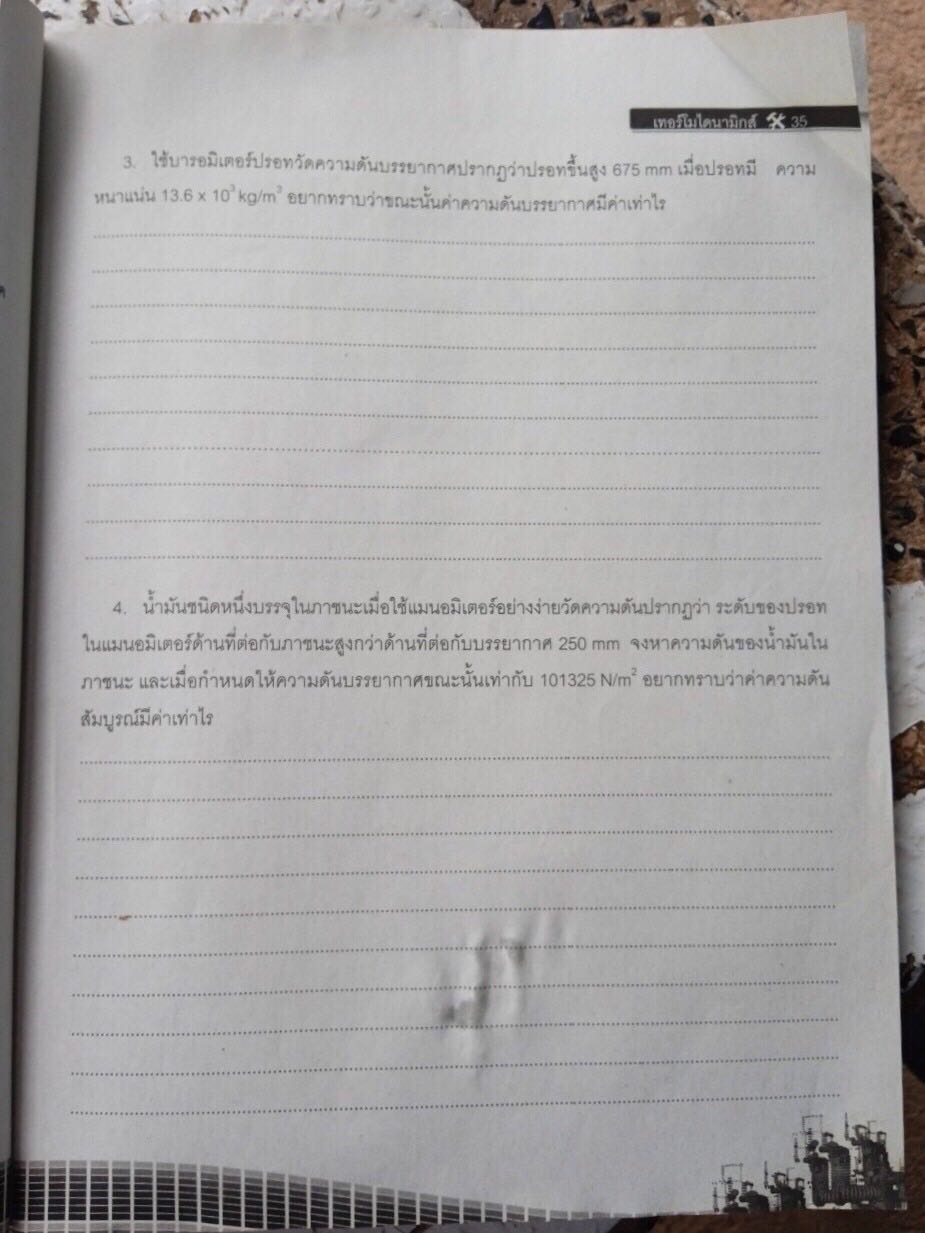 เทอร์โมไดนามิกส์ 35
3. ใช้บารอมิเตอร์ปรอทวัดความดันบรรยากาศปรากฏว่าปรอทขึ้นสูง 675 mm เมื่อปรอทมี ความ
หนาแน่น 13.6 x 10³ kg/m³ อยากทราบว่าขณะนั้นค่าความดันบรรยากาศมีค่าเท่าไร
4. น้ำมันชนิดหนึ่งบรรจุในภาชนะเมื่อใช้แมนอมิเตอร์อย่างง่ายวัดความดันปรากฏว่า ระดับของปรอท
ในแมนอมิเตอร์ด้านที่ต่อกับภาชนะสูงกว่าด้านที่ต่อกับบรรยากาศ 250 mm จงหาความดันของน้ำมันใน
ภาชนะ และเมื่อกำหนดให้ความดันบรรยากาศขณะนั้นเท่ากับ 101325 N/m² อยากทราบว่าค่าความดัน
สัมบูรณ์มีค่าเท่าไร